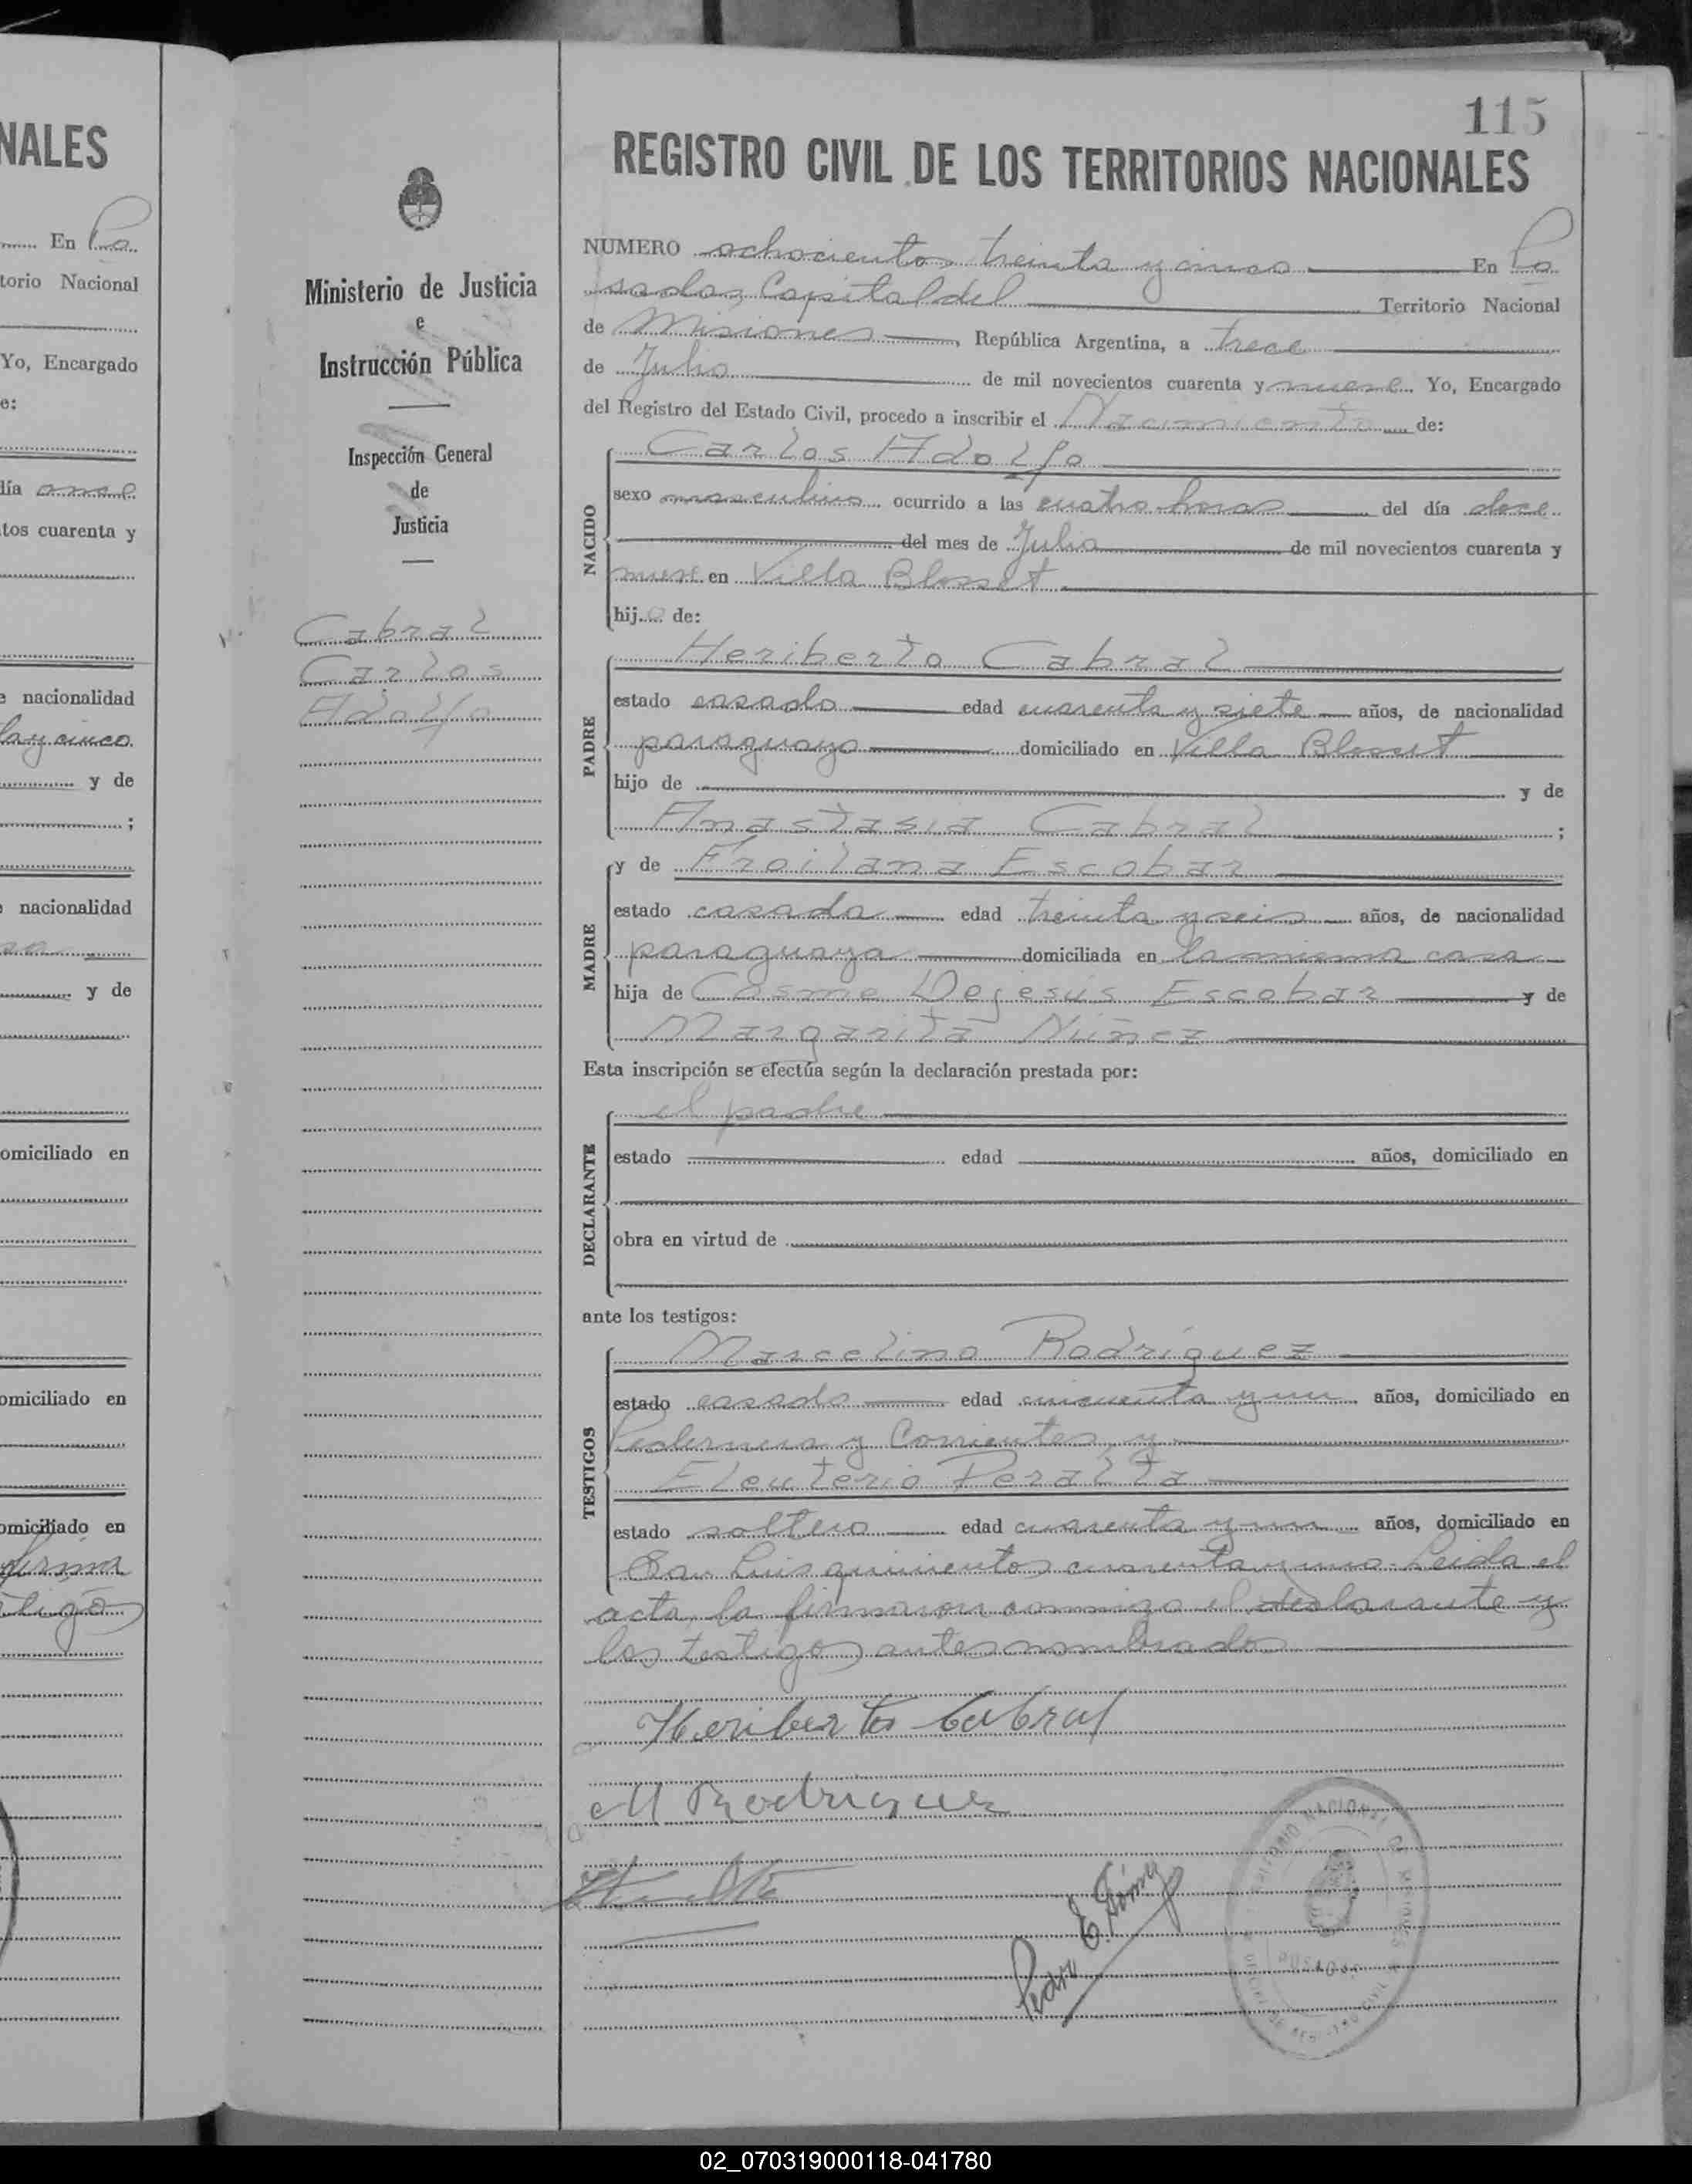 NALES
En Po
torio Nacional
Yo, Encargado
e:
día once
tos cuarenta y
e nacionalidad
ta y cinco
y de
;
e nacionalidad
y de
omiciliado en
omiciliado en
omiciliado en
firma
Ministerio de Justicia
e
Instrucción Pública
Inspección General
de
Justicia
Cabral
Carlos
Adolfo
115
REGISTRO CIVIL DE LOS TERRITORIOS NACIONALES
NUMERO ochocientos treinta y cinco En Po
sadas, Capital del Territorio Nacional
de Misiones, República Argentina, a trece
de Julio de mil novecientos cuarenta y nueve. Yo, Encargado
del Registro del Estado Civil, procedo a inscribir el Nacimiento de:
NACIDO
Carlos Adolfo
sexo masculino ocurrido a las cuatro horas del día doce
del mes de Julio de mil novecientos cuarenta y
nueve en Villa Blosset
hijo de:
PADRE
Heriberto Cabral
estado casado edad cuarenta y siete años, de nacionalidad
paraguaya domiciliado en Villa Blosset
hijo de y de
Anastasia Cabral ;
MADRE
y de Froilana Escobar
estado casada edad treinta y seis años, de nacionalidad
paraguaya domiciliada en la misma casa
hija de Cosme Dejesus Escobar y de
Margarita Núñez
Esta inscripción se efectúa según la declaración prestada por:
DECLARANTE
el padre
estado edad años, domiciliado en
obra en virtud de
ante los testigos:
TESTIGOS
Marcelino Rodríguez
estado casado edad cincuenta y un años, domiciliado en
Pedernera y Corrientes, y
Eleuterio Peralta
estado soltero edad cuarenta y un años, domiciliado en
San Luis quinientos cuarenta y uno. Leída el
acta, la firmaron conmigo el declarante y
los testigos antes nombrados
Heriberto Cabral
M Rodriguez
Pedro E. Gómez
TERRITORIO NACIONAL DE MISIONES
POSADAS
02_070319000118-041780